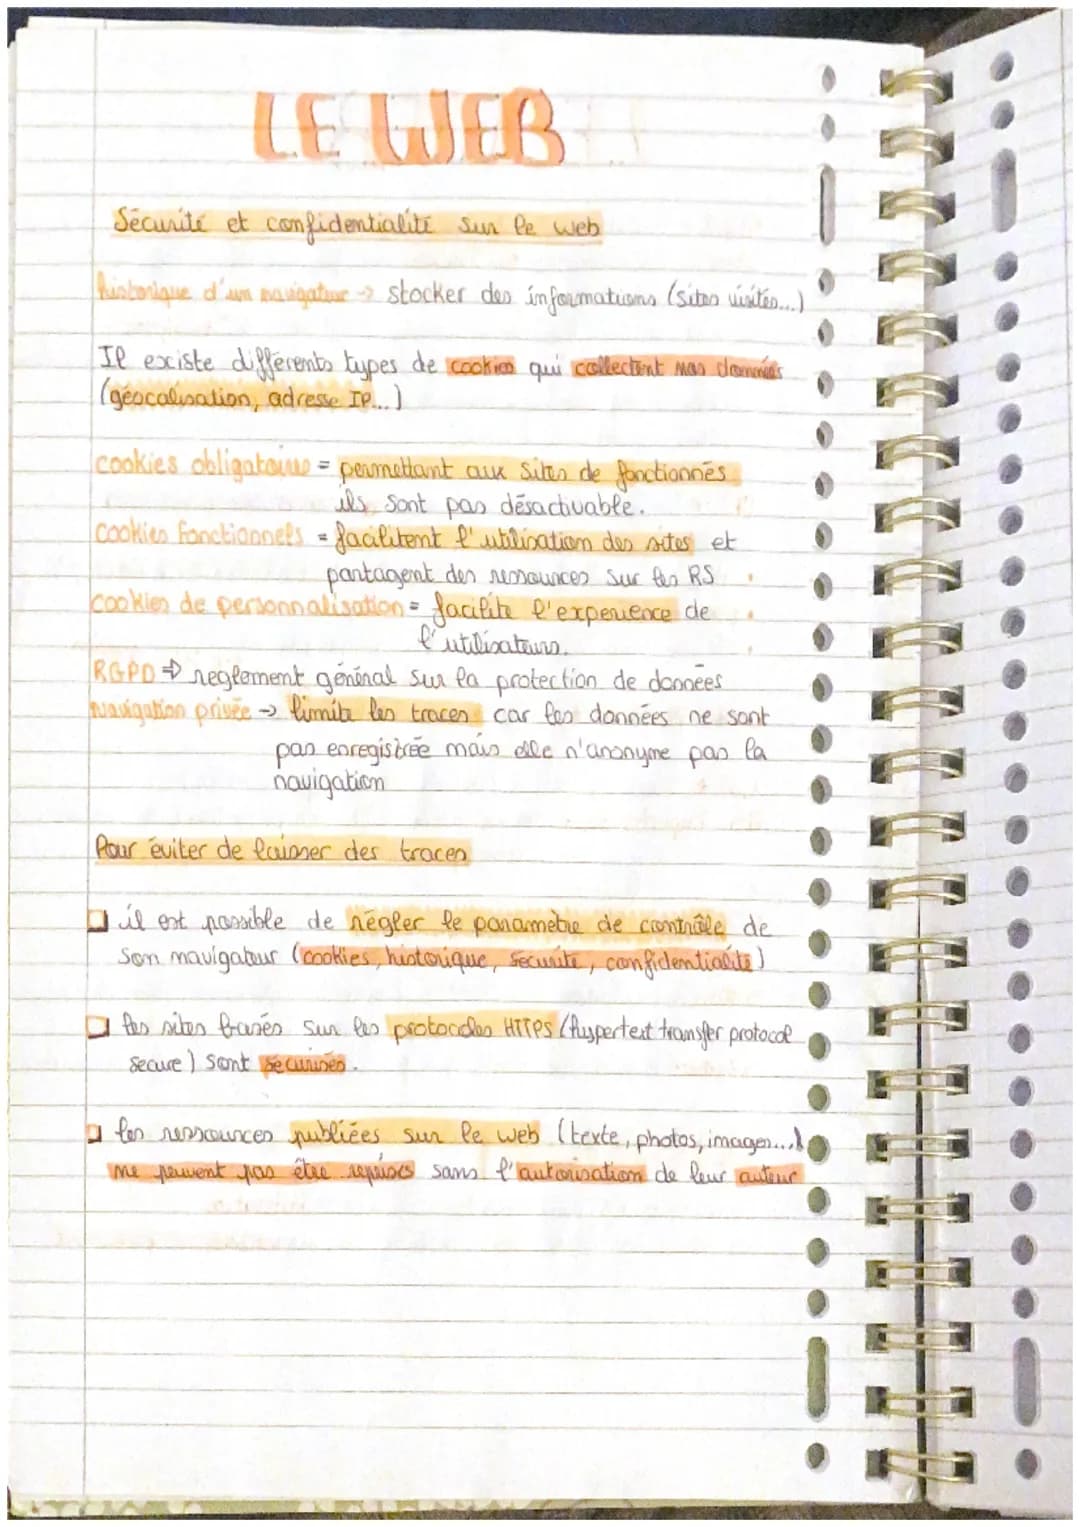 LE WEB
Sécurité et confidentialité sur le web
historique d'un navigateur → stocker des informations (sites visités...)
Il existe différents types de cookies qui collectent nos données
(géocalisation, adresse IP...)
cookies obligatoires = permettant aux sites de fonctionnés
ils sont pas désactivable.
cookies fonctionnels = facilitent l'utilisation des sites et
partagent des ressources sur les RS
cookies de personnalisation = facilite l'experience de
l'utilisateurs.
RGPD ⇒ reglement général sur la protection de données
navigation privée → limite les traces car les données ne sont
pas enregistrée mais elle n'anonyme pas la
navigation
Pour éviter de laisser des traces
il est possible de régler le paramètre de contrôle de
son navigateur (cookies, historique, sécurité, confidentialité)
les sites basés sur les protocoles HTTPS (hypertext transfer protocol
secure) sont sécurisés.
les ressources publiées sur le web (texte, photos, images...)
ne peuvent pas être repises sans l'autorisation de leur auteur